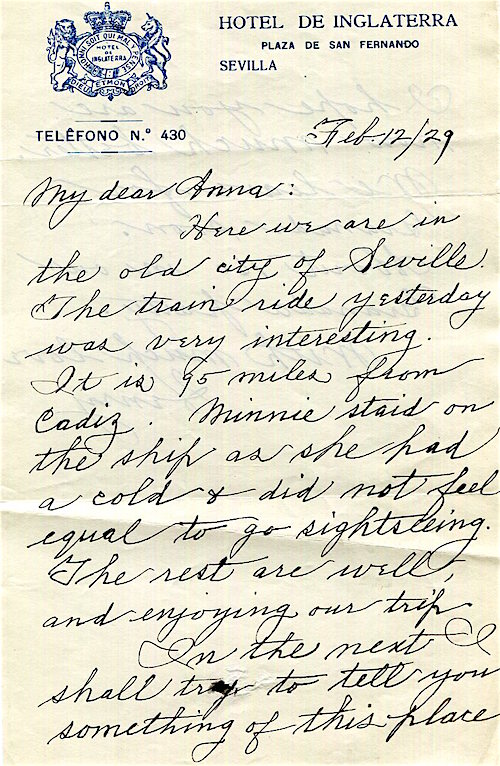 HOTEL DE INGLATERRA
PLAZA DE SAN FERNANDO
SEVILLA
HOTEL
DE
INGLATERRA
TELÉFONO N.º 430
Feb. 12/29
My dear Anna:
Here we are in
the old city of Seville.
The train ride yesterday
was very interesting.
It is 95 miles from
Cadiz. Minnie staid on
the ship as she had
a cold & did not feel
equal to go sightseeing.
The rest are well,
and enjoying our trip
In the next I
shall try to tell you
something of this place